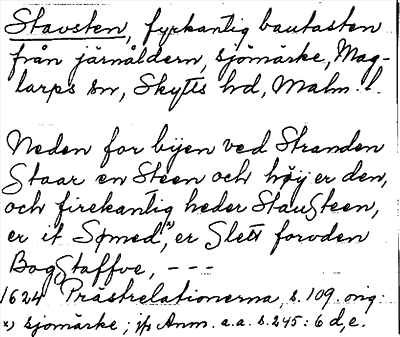 Stavsten, fyrkantig bautasten
från järnåldern, sjömärke, Mag-
larps sn, Skytts hd, Malm. l.
Neden for bÿen ved Stranden
Staar en Steen och høÿ er den,
och firekantig heder StauSteen,
er it Sømed x), er Slett foruden
BogStaffve, - - -
1624 Prästrelationerna, s. 109. orig:
x) sjömärke; jfr Anm. a.a. s. 245: 6 d, e.